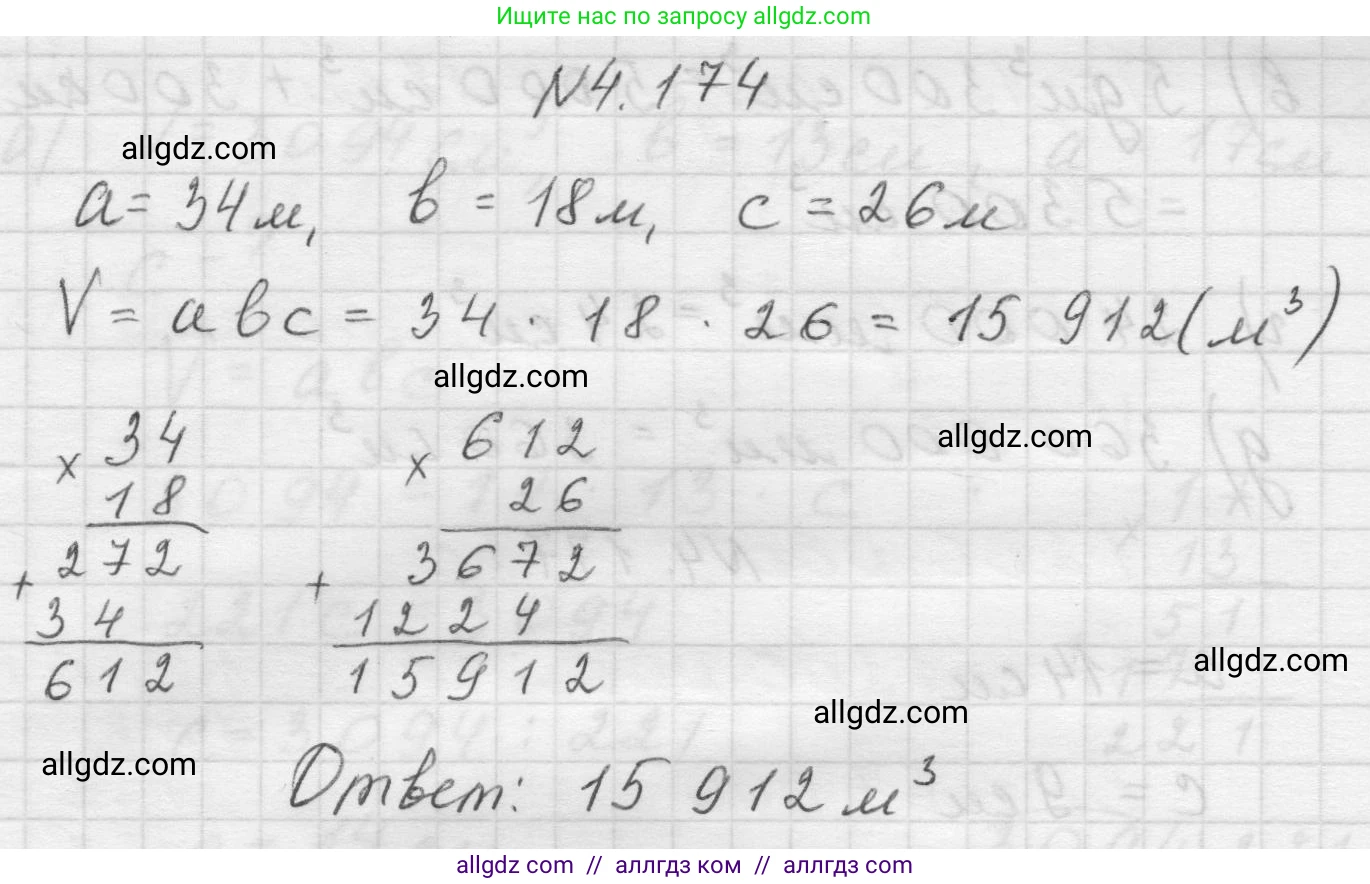 Ищите нас по запросу allgdz.com
№4.174
allgdz.com
a = 34 м, b = 18 м, c = 26 м
V = abc = 34 · 18 · 26 = 15 912 (м³)
allgdz.com
allgdz.com
× 34
18
+ 272
34
612
× 612
26
+ 3672
1224
15912
allgdz.com
allgdz.com
allgdz.com
Ответ: 15 912 м³
allgdz.com // аллгдз ком // аллгдз.com